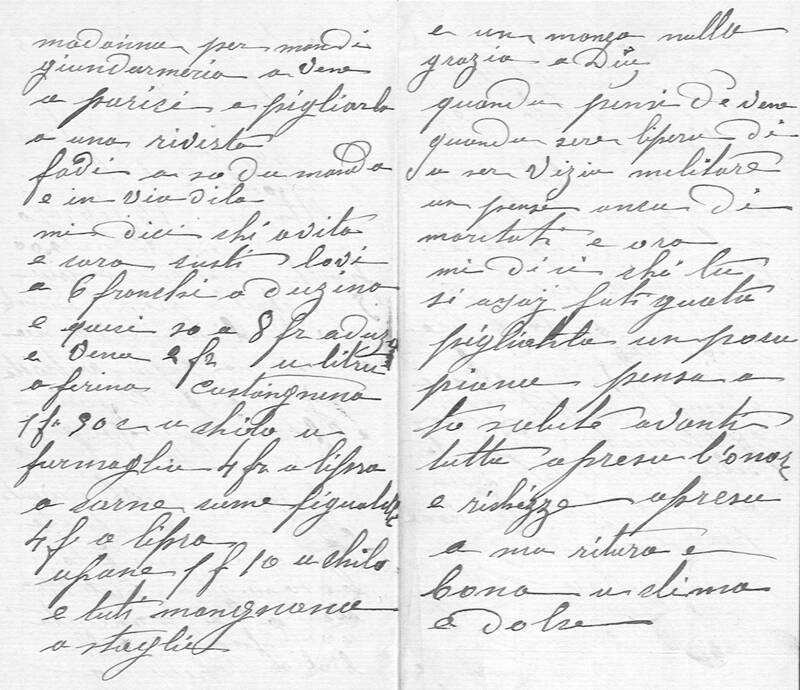 madonna per mandi
giundarmeria a vene
a parisi a pigliarla
a una rivista
fadi a so dumanda
e in via dila
mi dici chi avita
e cara custi lovi
a 6 franchi a duzina
e quasi so a 8 fr a duz
e vena 2 fr u litru
a ferina castangnena
1 fr 90 c u chilo u
furmagliu 4 fr a lipra
a carne cume figuati
4 f a lipra
u pane 1 f 10 u chilo
e tuti mangnanu
a staglia
e un manca nulla
grazia a Diu
quandu pensi de vene
quandu sere liperu di
u ser viziu militare
un pensi ancu di
maritati e ora
mi dici chi tu
si assaj fatiguatu
piglialla un pocu
pianu pensa a
to salute avanti
tuttu apresu l'onor
e richezze apresu
a ma ritura e
bona u clima
e dolce